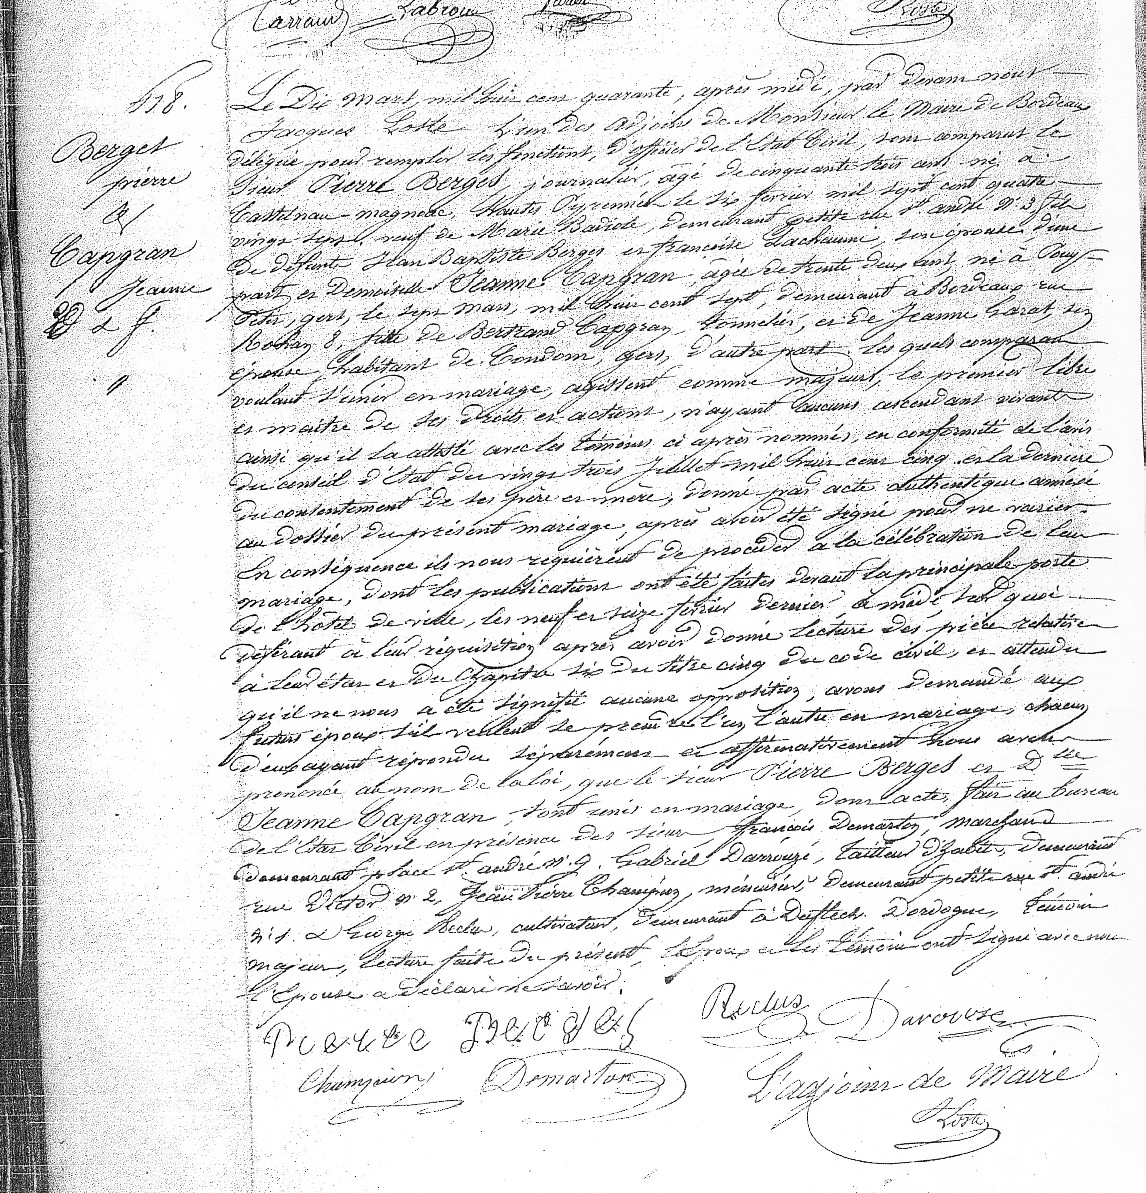 Tarraud Labroue
Loste
118.
Berges
pierre
&
Capgran
Jeanne
Le Dix Mars, mil huit cent quarante, après midi, par devant nous
Jacques Loste l'un des adjoins de Monsieur le Maire de Bordeaux
délégué pour remplir les fonctions d'officier de l'Etat Civil, sont comparus le
Sieur Pierre Berges, journalier, agé de cinquante trois ans né à
Castelnau-magnoac, Hautes Pyrennées le six fevrier mil sept cent quatre
vingt sept, veuf de Marie demeurant petite rue St. andré N. 3 fils
De défunts Jean Baptiste Berges et françoise Lachaume, son épouse d'une
part, et Demoiselle Jeanne Capgran, agée de trente deux ans, né à Pouy
Petit, gers, le sept Mars, mil huit cent sept, demeurant à Bordeaux rue
Rohan 8, fille de Bertrand Capgran, tonnelier, et de Jeanne Garat son
épouse habitant de Condom, gers, d'autre part. les quels comparans
voulant s'unir en mariage, agissent comme majeurs, le premier libre
et maitre de ses droits et actions, n'ayant aucuns ascendant vivants
ainsi qu'il l'a attesté avec les témoins ci après nommés, en conformité de l'avis
du conseil d'Etat du vingt trois Juillet mil huit cent cinq et la derniere
du consentement de ses père et mère, donné par acte authentique annéxé
au dossier du présent mariage, après avoir été signé pour ne varier.
En conséquence ils nous requièrent de procéder à la célébration de leur
mariage, dont les publications ont été faites devant la principale porte
de l'hôtel de ville, les neuf et seize février dernier à midi, sur quoi
déférant à leur réquisition après avoir donné lecture des pièces relative
à leur état et du Chapitre six du titre cinq du code civil, et attendu
qu'il ne nous a été signifié aucune opposition, avons demandé aux
futurs époux s'il veulent se prendre l'un l'autre en mariage, chacun
deux ayant répondu séparément et affirmativement nous avons
prononcé au nom de la loi, que le sieur Pierre Berges et Dlle
Jeanne Capgran, sont unis en mariage, dont acte, fait au bureau
de l'Etat Civil en présence des sieurs françois Demarton, marchand
demeurant place St. andré N. 9. Gabriel Darrouzé, tailleur d'habits, demeurant
rue N. 2, Jean Pierre Champion, ménuisier, demeurant petite rue St andré
N. 1. & George Reclus, cultivateur, demeurant à Dordogne, témoin
majeur, lecture faite du présent, l'Epoux et les témoin ont signé avec nous
l'Epouse a déclaré ne savoir.
Pierre Berges Reclus Darouse
Champion Demarton L'adjoint de Maire
Loste